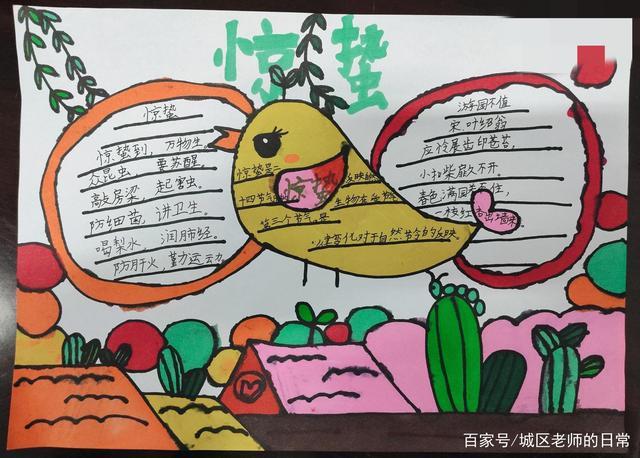 惊蛰
惊蛰
惊蛰到，万物生。
众昆虫 要苏醒
敲房梁，起害虫。
防细菌，讲卫生。
喝梨水，润肺经。
防肝火，勤运动
惊蛰是二
十四节气
第三个节气是
惊蛰
反映
生物在
变化对于自然节令的反映。
游园不值
宋·叶绍翁
应怜屐齿印苍苔，
小扣柴扉久不开。
春色满园关不住，
一枝红杏出墙来
百家号/城区老师的日常